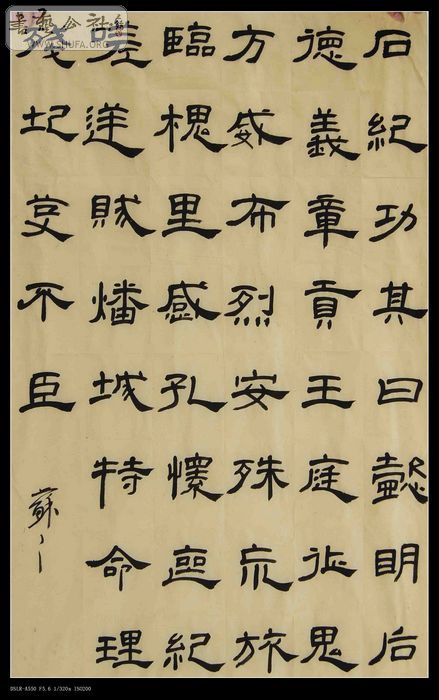 書藝公社
WWW.SHUFA.ORG
石紀功其曰懿明后
德義章貢王庭征鬼
方威布烈安殊巟旅
臨槐里感孔懷紀
嗟逆賊燔城特命理
殘圮芟不臣
蘇
DSLR-A550 F5.6 1/320s ISO200